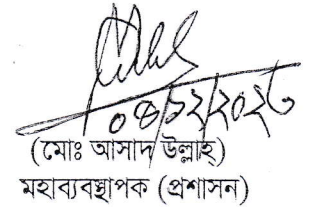 ০৪/১২/২০২৩
(মোঃ আসাদ উল্লাহ)
মহাব্যবস্থাপক (প্রশাসন)